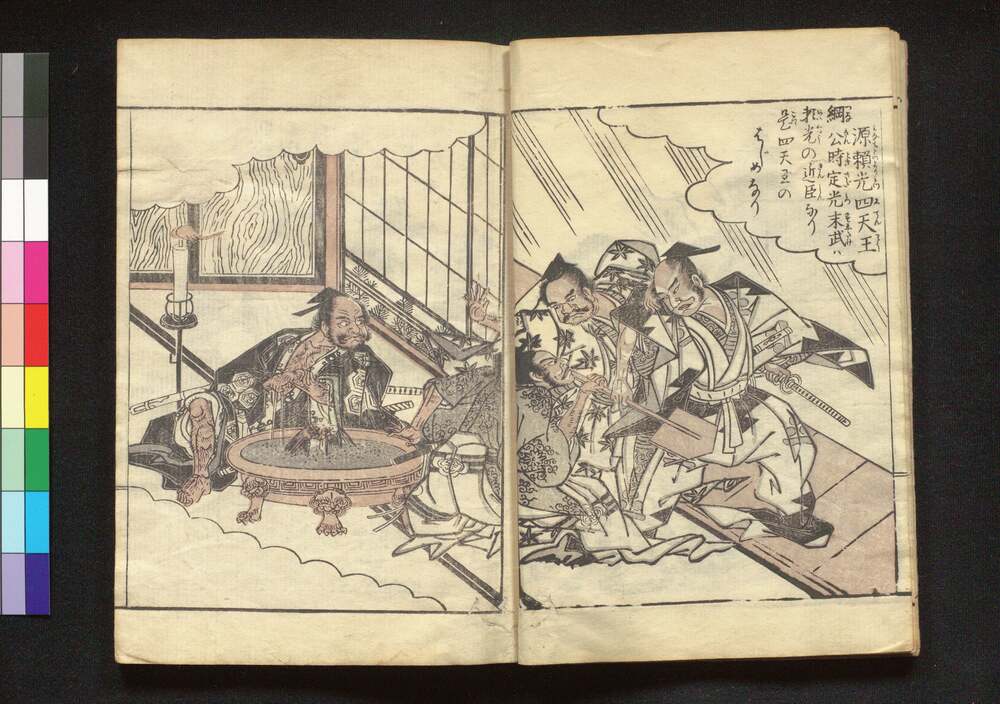 源頼光四天王
綱公時定光末武ハ
頼光の近臣なり
是四天王の
はじめなり